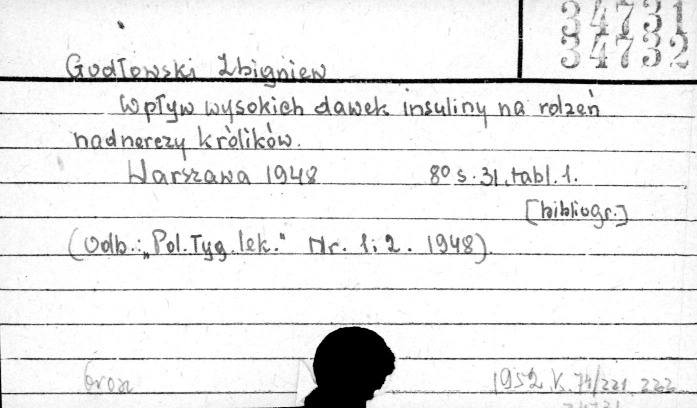 34731
34732
Godłowski Zbigniew
Wpływ wysokich dawek insuliny na rdzeń
nadnerczy królików.
Warszawa 1948 8º s. 31, tabl. 1.
[bibliogr.]
(Odb.: „Pol. Tyg. lek." Nr. 1 i 2. 1948).
1952 K. 74/221, 222